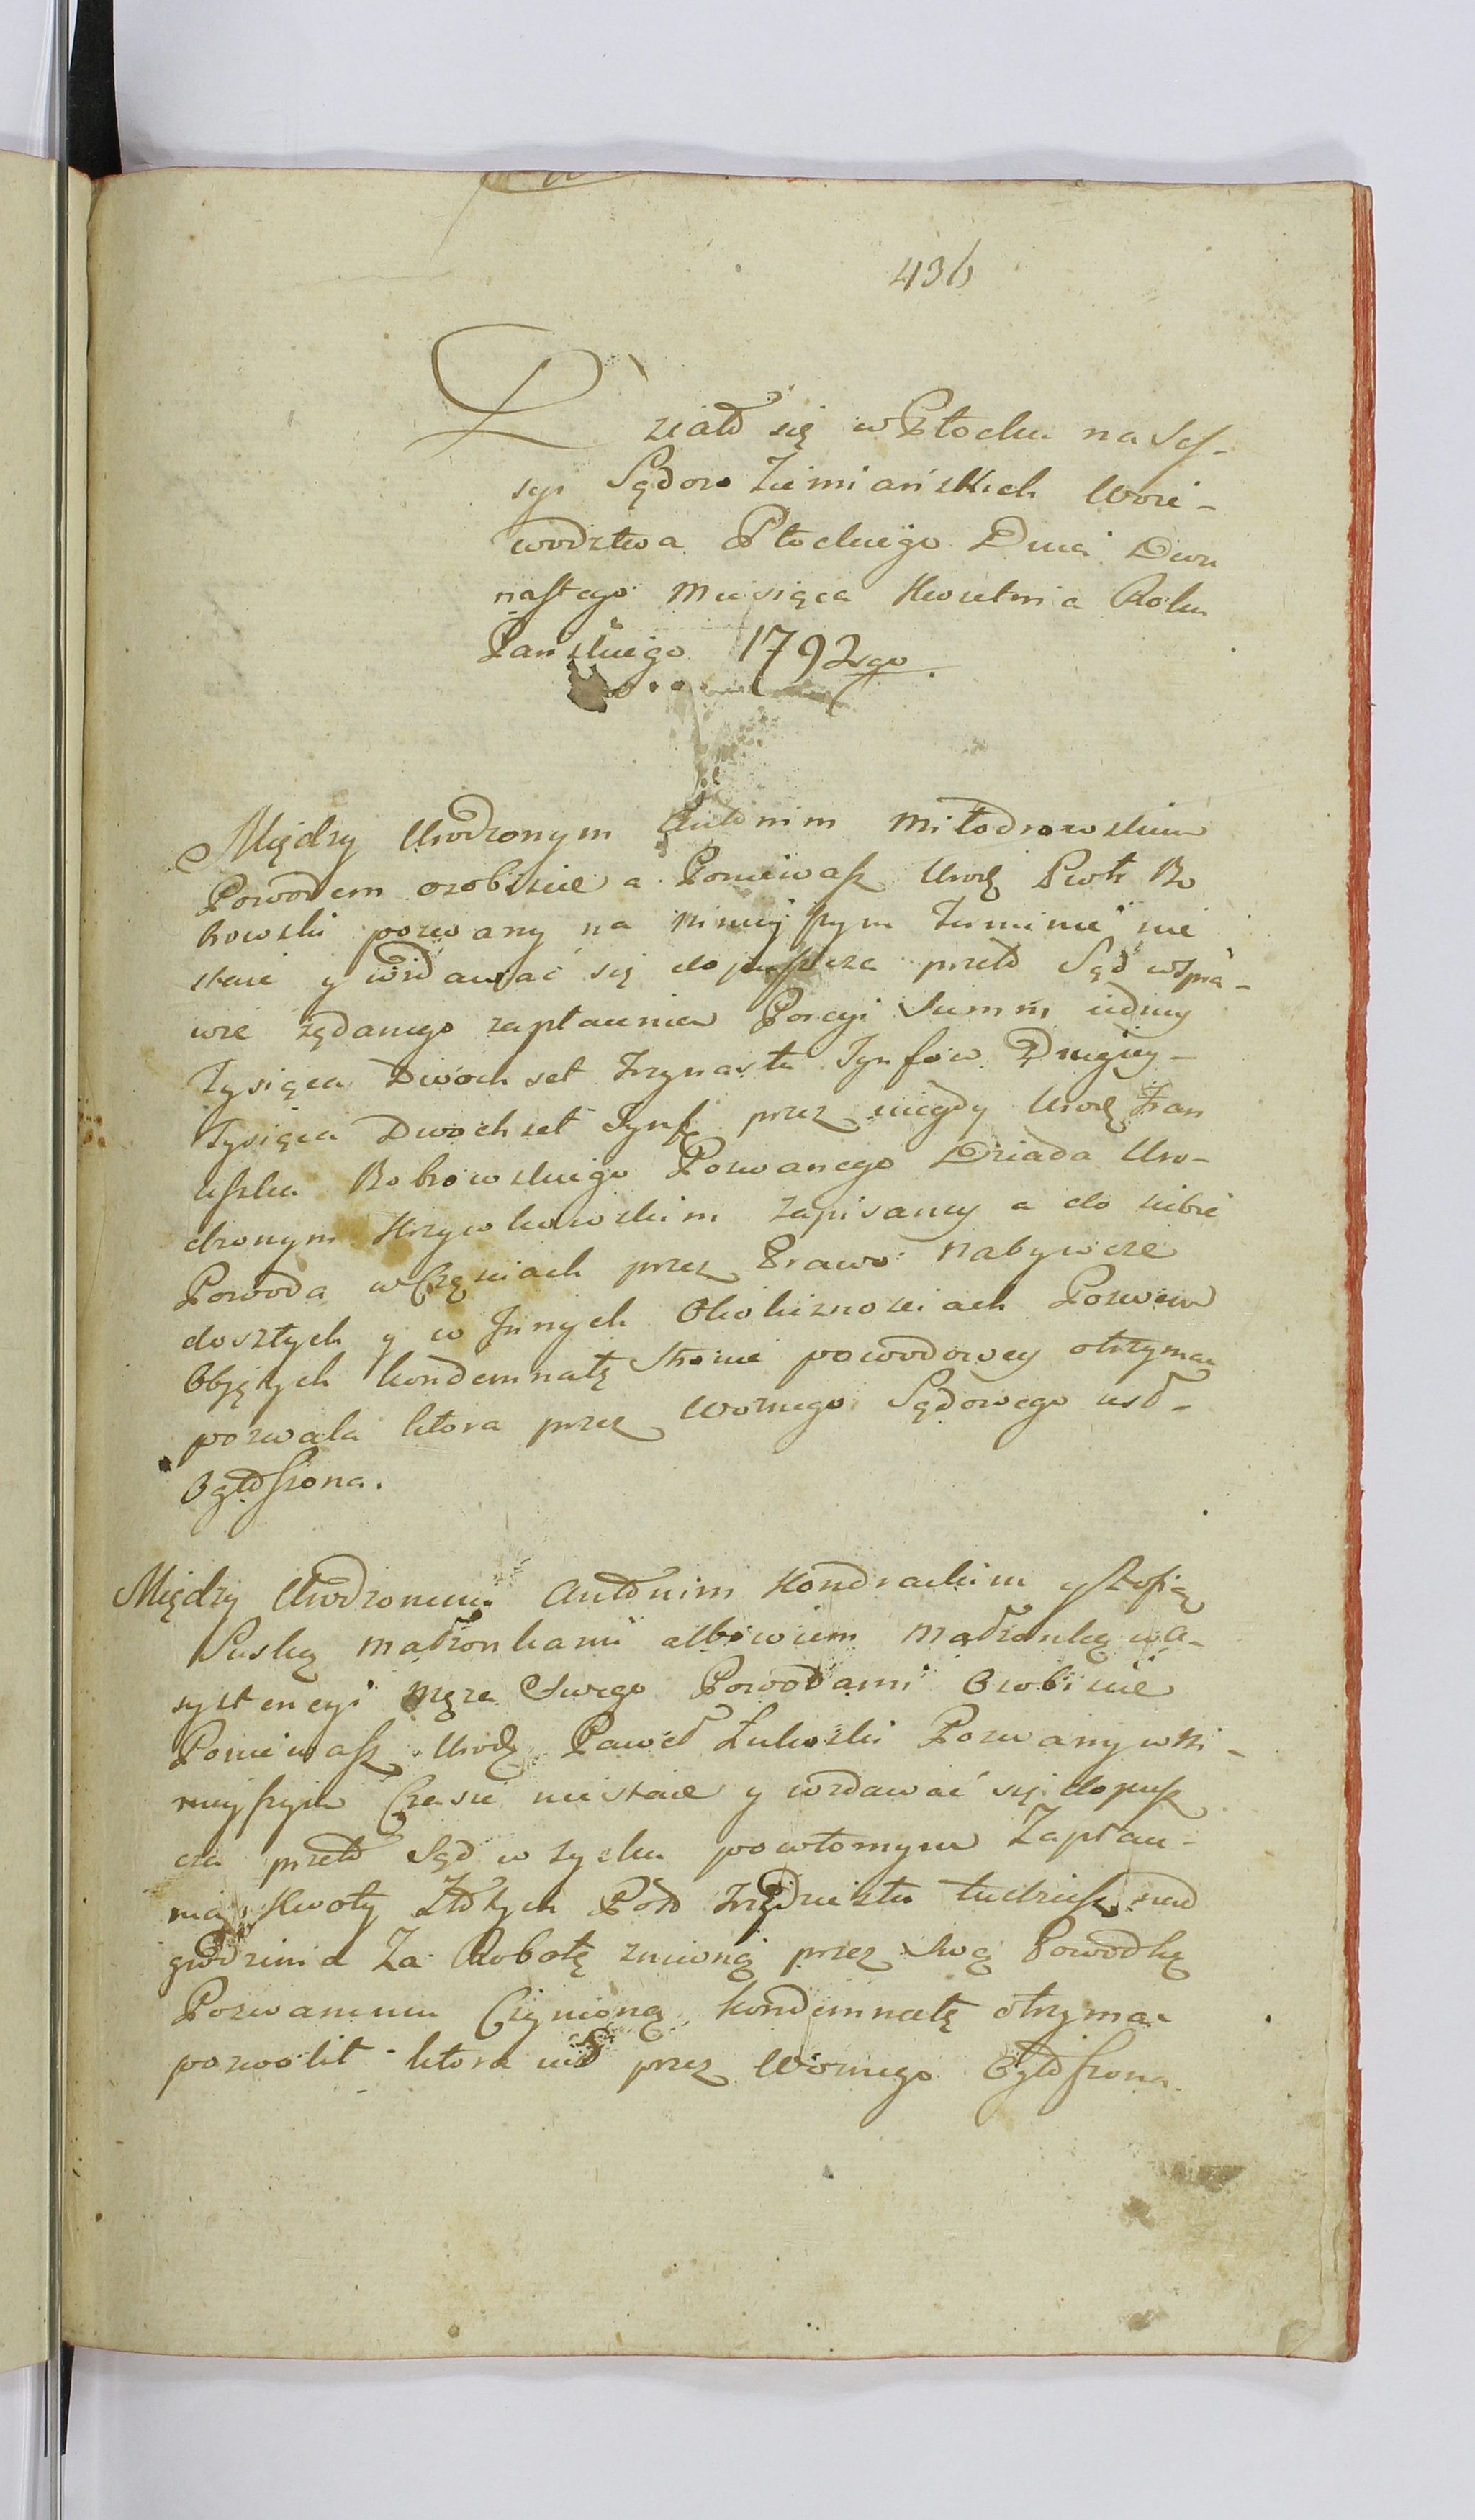 436
Działo się w Płocku na Ses-
syi Sądow Ziemiańskich Woie-
wodztwa Płockiego Dnia Dwu
nastego Miesiąca Kwietnia Roku
Pańskiego 1792go.
Między Urodzonym Antonim Miłodrowskim
Powodem osobiscie a Poniewasz Urodz Piotr Bo
browski pozwany na ninieyszym Terminie nie
staie y wzdawać się dopuszcza przed Sąd w spra-
wie żądanego zapłacenia Porcyi Summ iedney
Tysiąca Dwoch set Trzynastu Tynfow Drugiey
Tysiąca Dwoch set Tynf przez niegdy Urodz Fran
ciszka Bobrowskiego Pozwanego Dziada Uro-
dzonym Krzywkowskim zapisaney a do siebie
Powoda w Częsciach przez Prawo Nabywcze
doszłych y w Innych Okolicznosciach Pozwem
Objętych kondemnatę Stronie powodowey otrzymać
pozwala ktora przez Woznego Sądowego iest
Ogłoszona.
Między Urodzonemi Antonim Kondrackim y Zofią
Suską Małżonkami albowiem Małżonką w A-
systencyi Męża Swego Powodami Osobiscie
Poniewasz Urodz Paweł Zuloski Pozwany w Ni-
nieyszym Czasie niestaie y wzdawać się dopusz
cza przed Sąd w zysku powtornym Zapłace-
nia Kwoty Złotych Pols Trzydziestu tudziesz nad
grodzenia Za Robotę zniwną przez swą Powodkę
Pozwanemu Czynioną kondemnatę otrzymac
pozwolił ktora iest przez Woznego Ogłoszona